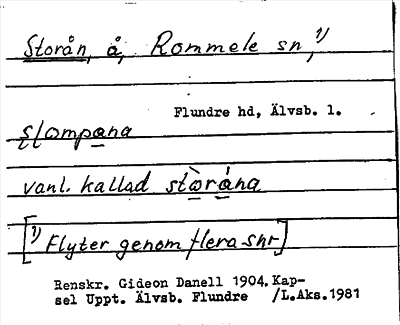 Storån, å, Rommele sn,¹⁾
Flundre hd, Älvsb. l.
slompana
vanl. kallad stòråna
[¹⁾ Flyter genom flera snr]
Renskr. Gideon Danell 1904. Kap-
sel Uppt. Älvsb. Flundre /L.Aks.1981